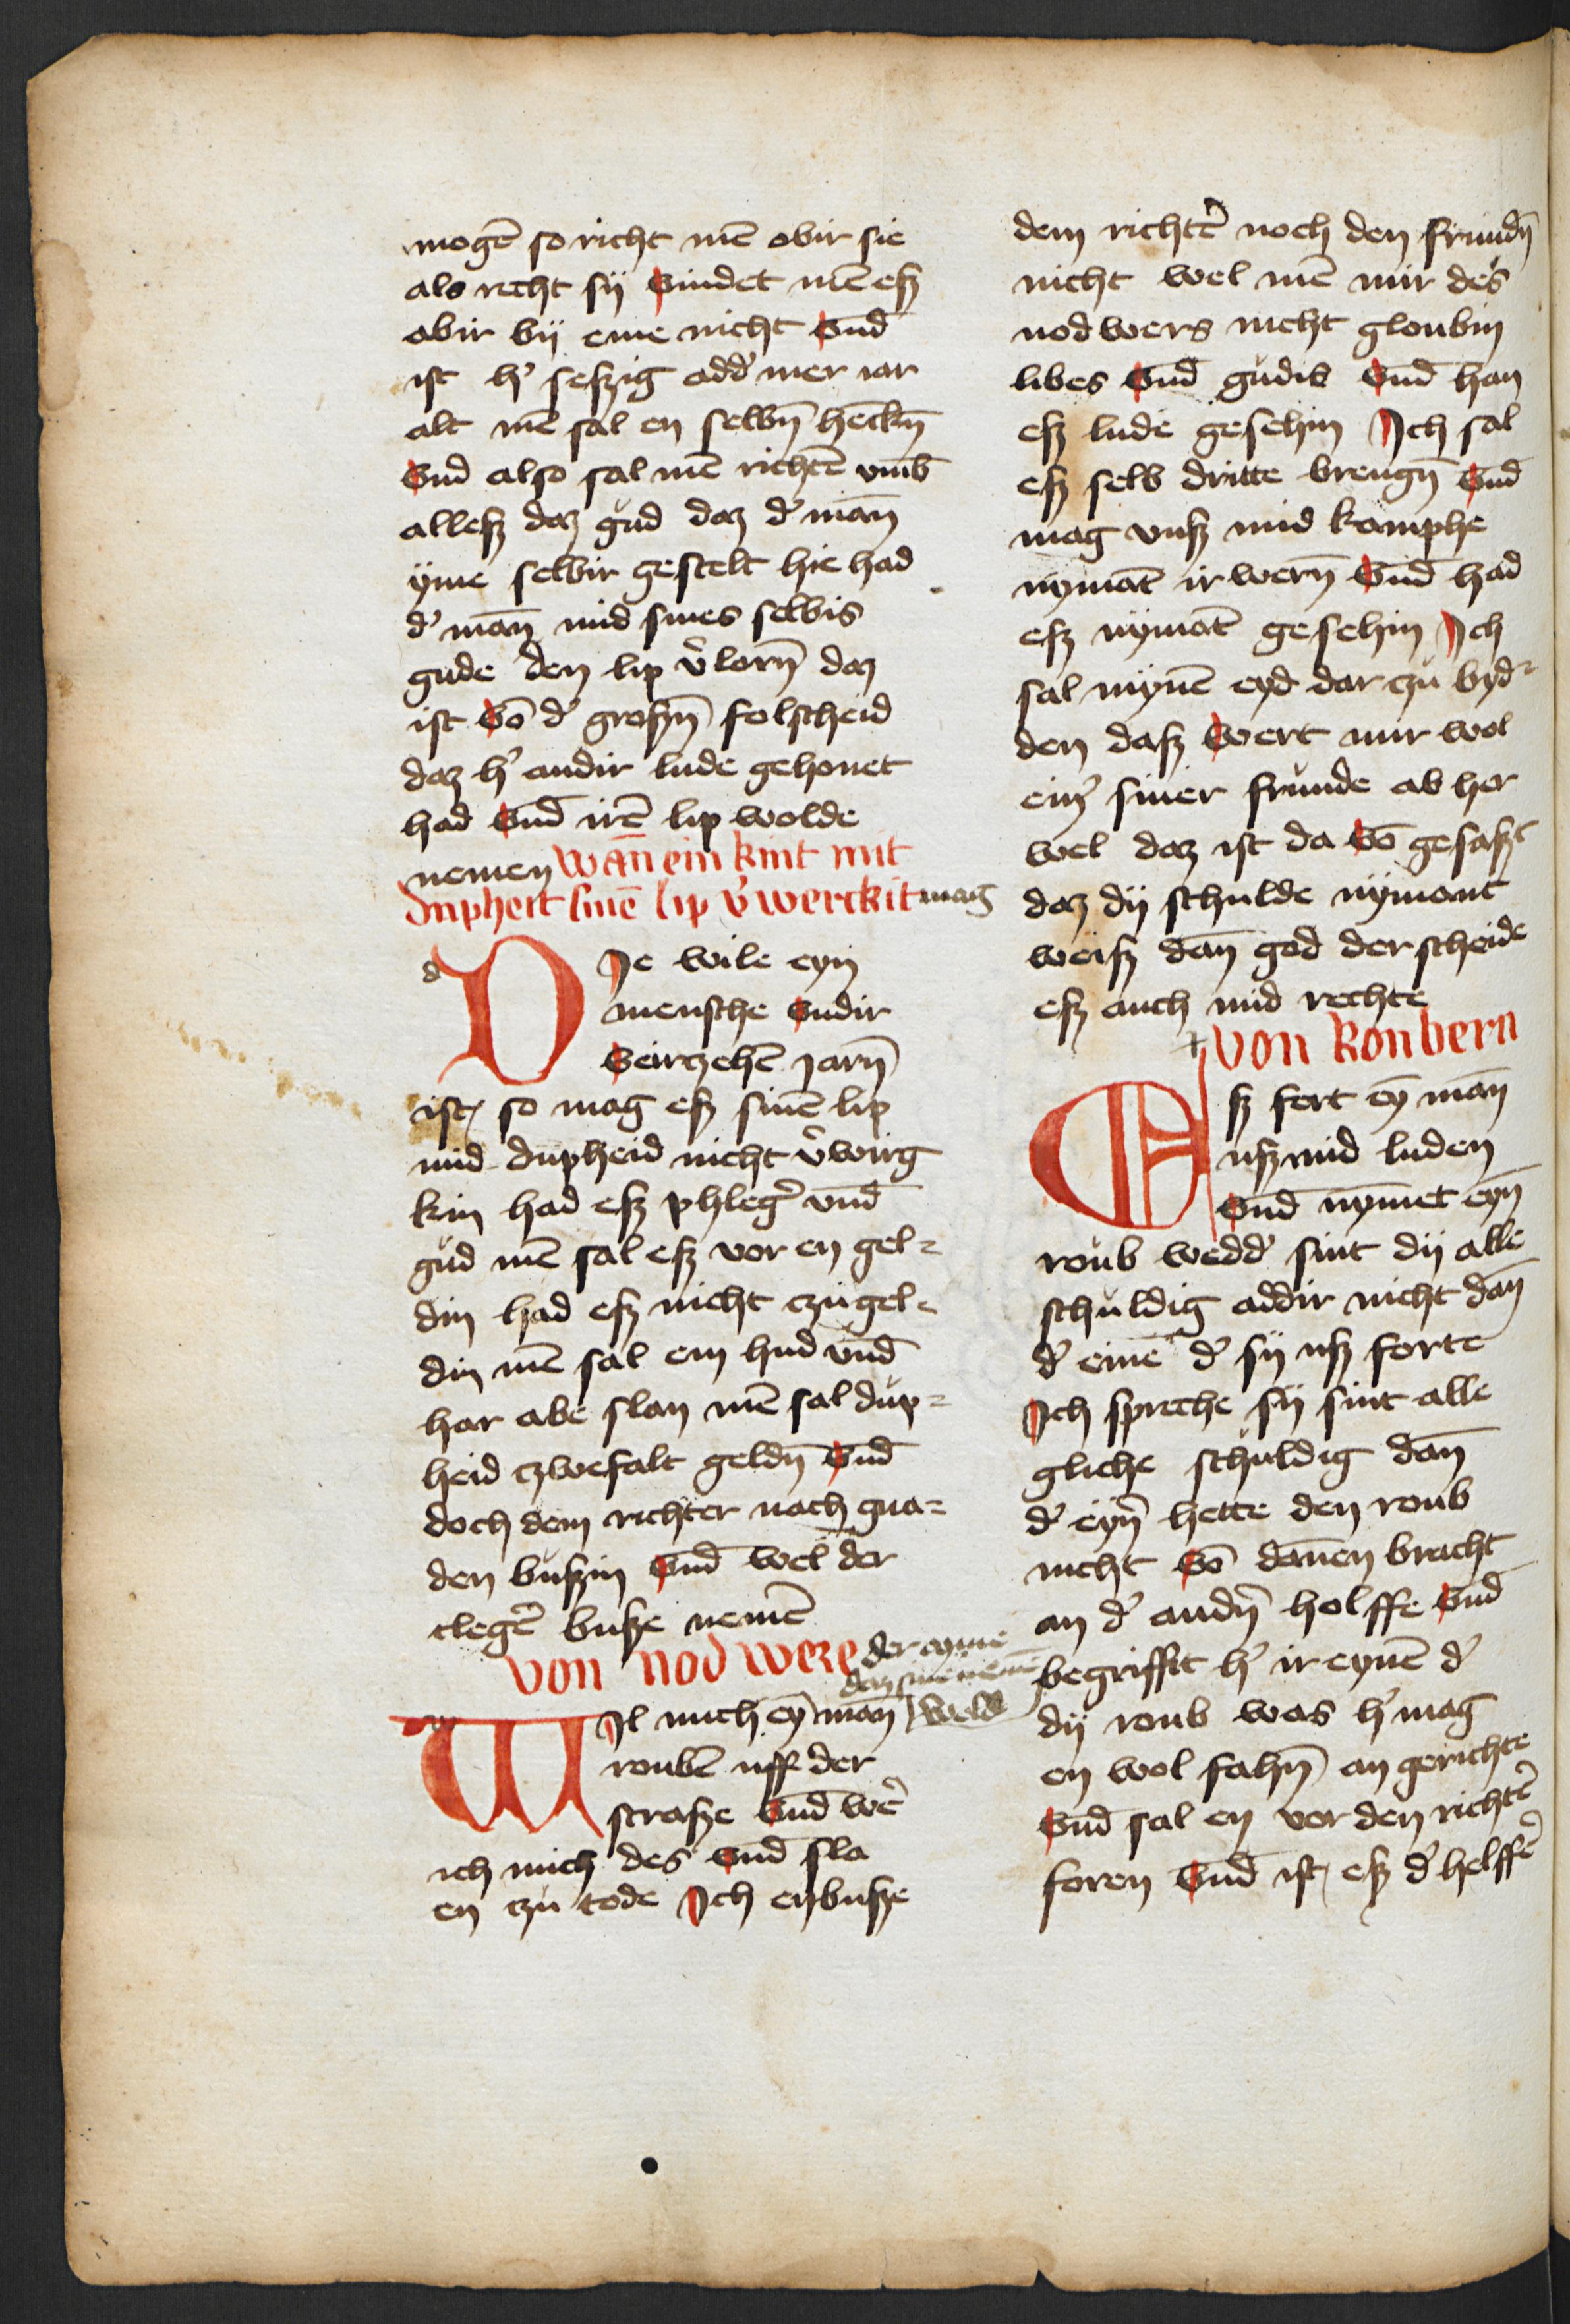 mogē so richt mē obir sie
als recht sij vindet mē eſz
obir bij eme nicht vnd̄
ist h' seſzig add' mer iar
alt mē sal en selbn̄ henckn̄
vnd also sal mē richtē vmb̄
alleſz daz gud daz d' man̄
yme selbir gestelt hie had
d' man̄ mid sines selbis
gude den lip v'lorn̄ daz
ist vō d' groſzn̄ folscheid
daz h' andir lude gehonet
had vnd̄ irē lip wolde
nemen wan̄ ein kint mit
dupheit sinē lip v'werckit mag
d
DIe wile eyn
mensche vndir
veirczehē jarn̄
ist so mag eſz sinē lip
mid dupheid nicht v'wirg
kin had eſz phleg' vnd̄
gud mē sal eſz vor en gel-
din had eſz nicht czu gel-
din mē sal em hud vnd̄
har abe slan mē sal dup-
heid czwefalt geldn̄ vnd̄
doch dem richter nach gna-
den buſzin vnd̄ wel der
clegē' buſze nemē
von nod were der eyme
daz sine nemē
WIl mich eȳ man̄ wolde
roubē uff der
straſze vnd̄ wē'
ich mich des vnd̄ sla
en czu tode Ich enbuſze
dem richtē' noch den frundn̄
nicht wel mē mir des
nodwers nicht gloubin
libes vnd̄ gudis vnd̄ han
eſz lude gesehin Ich sal
eſz selb dritte brengn̄ vnd̄
mag vnſz mid kamphe
nymāt irwern̄ vnd̄ had
eſz nymāt gesehin Ich
sal mynē eyd dar czu byd-
den daſz wert mir wol
ein' siner frunde ab her
wel daz ist da vō gesaſzt
daz dij schulde nymant
weiſz dan̄ god der scheide
eſz auch mid rechte
von Roubern
Eſz fert eȳ man̄
uſz mid luden
vnd̄ nymmet eyn̄
roub wedd' sint dij alle
schuldig addir nicht dan̄
d' eine d' sij uſz forte
Ich spreche sij sint alle
gliche schuldig dan̄
d' eyn' hette den roub
nicht vō dannen bracht
an d' andn̄ holffe vnd̄
begriffit h' ir eynē d'
dij roub was h' mag
en wol fahn̄ an gerichte
vnd̄ sal en vor den richtē'
foren vnd̄ ist eſz d' helffē'